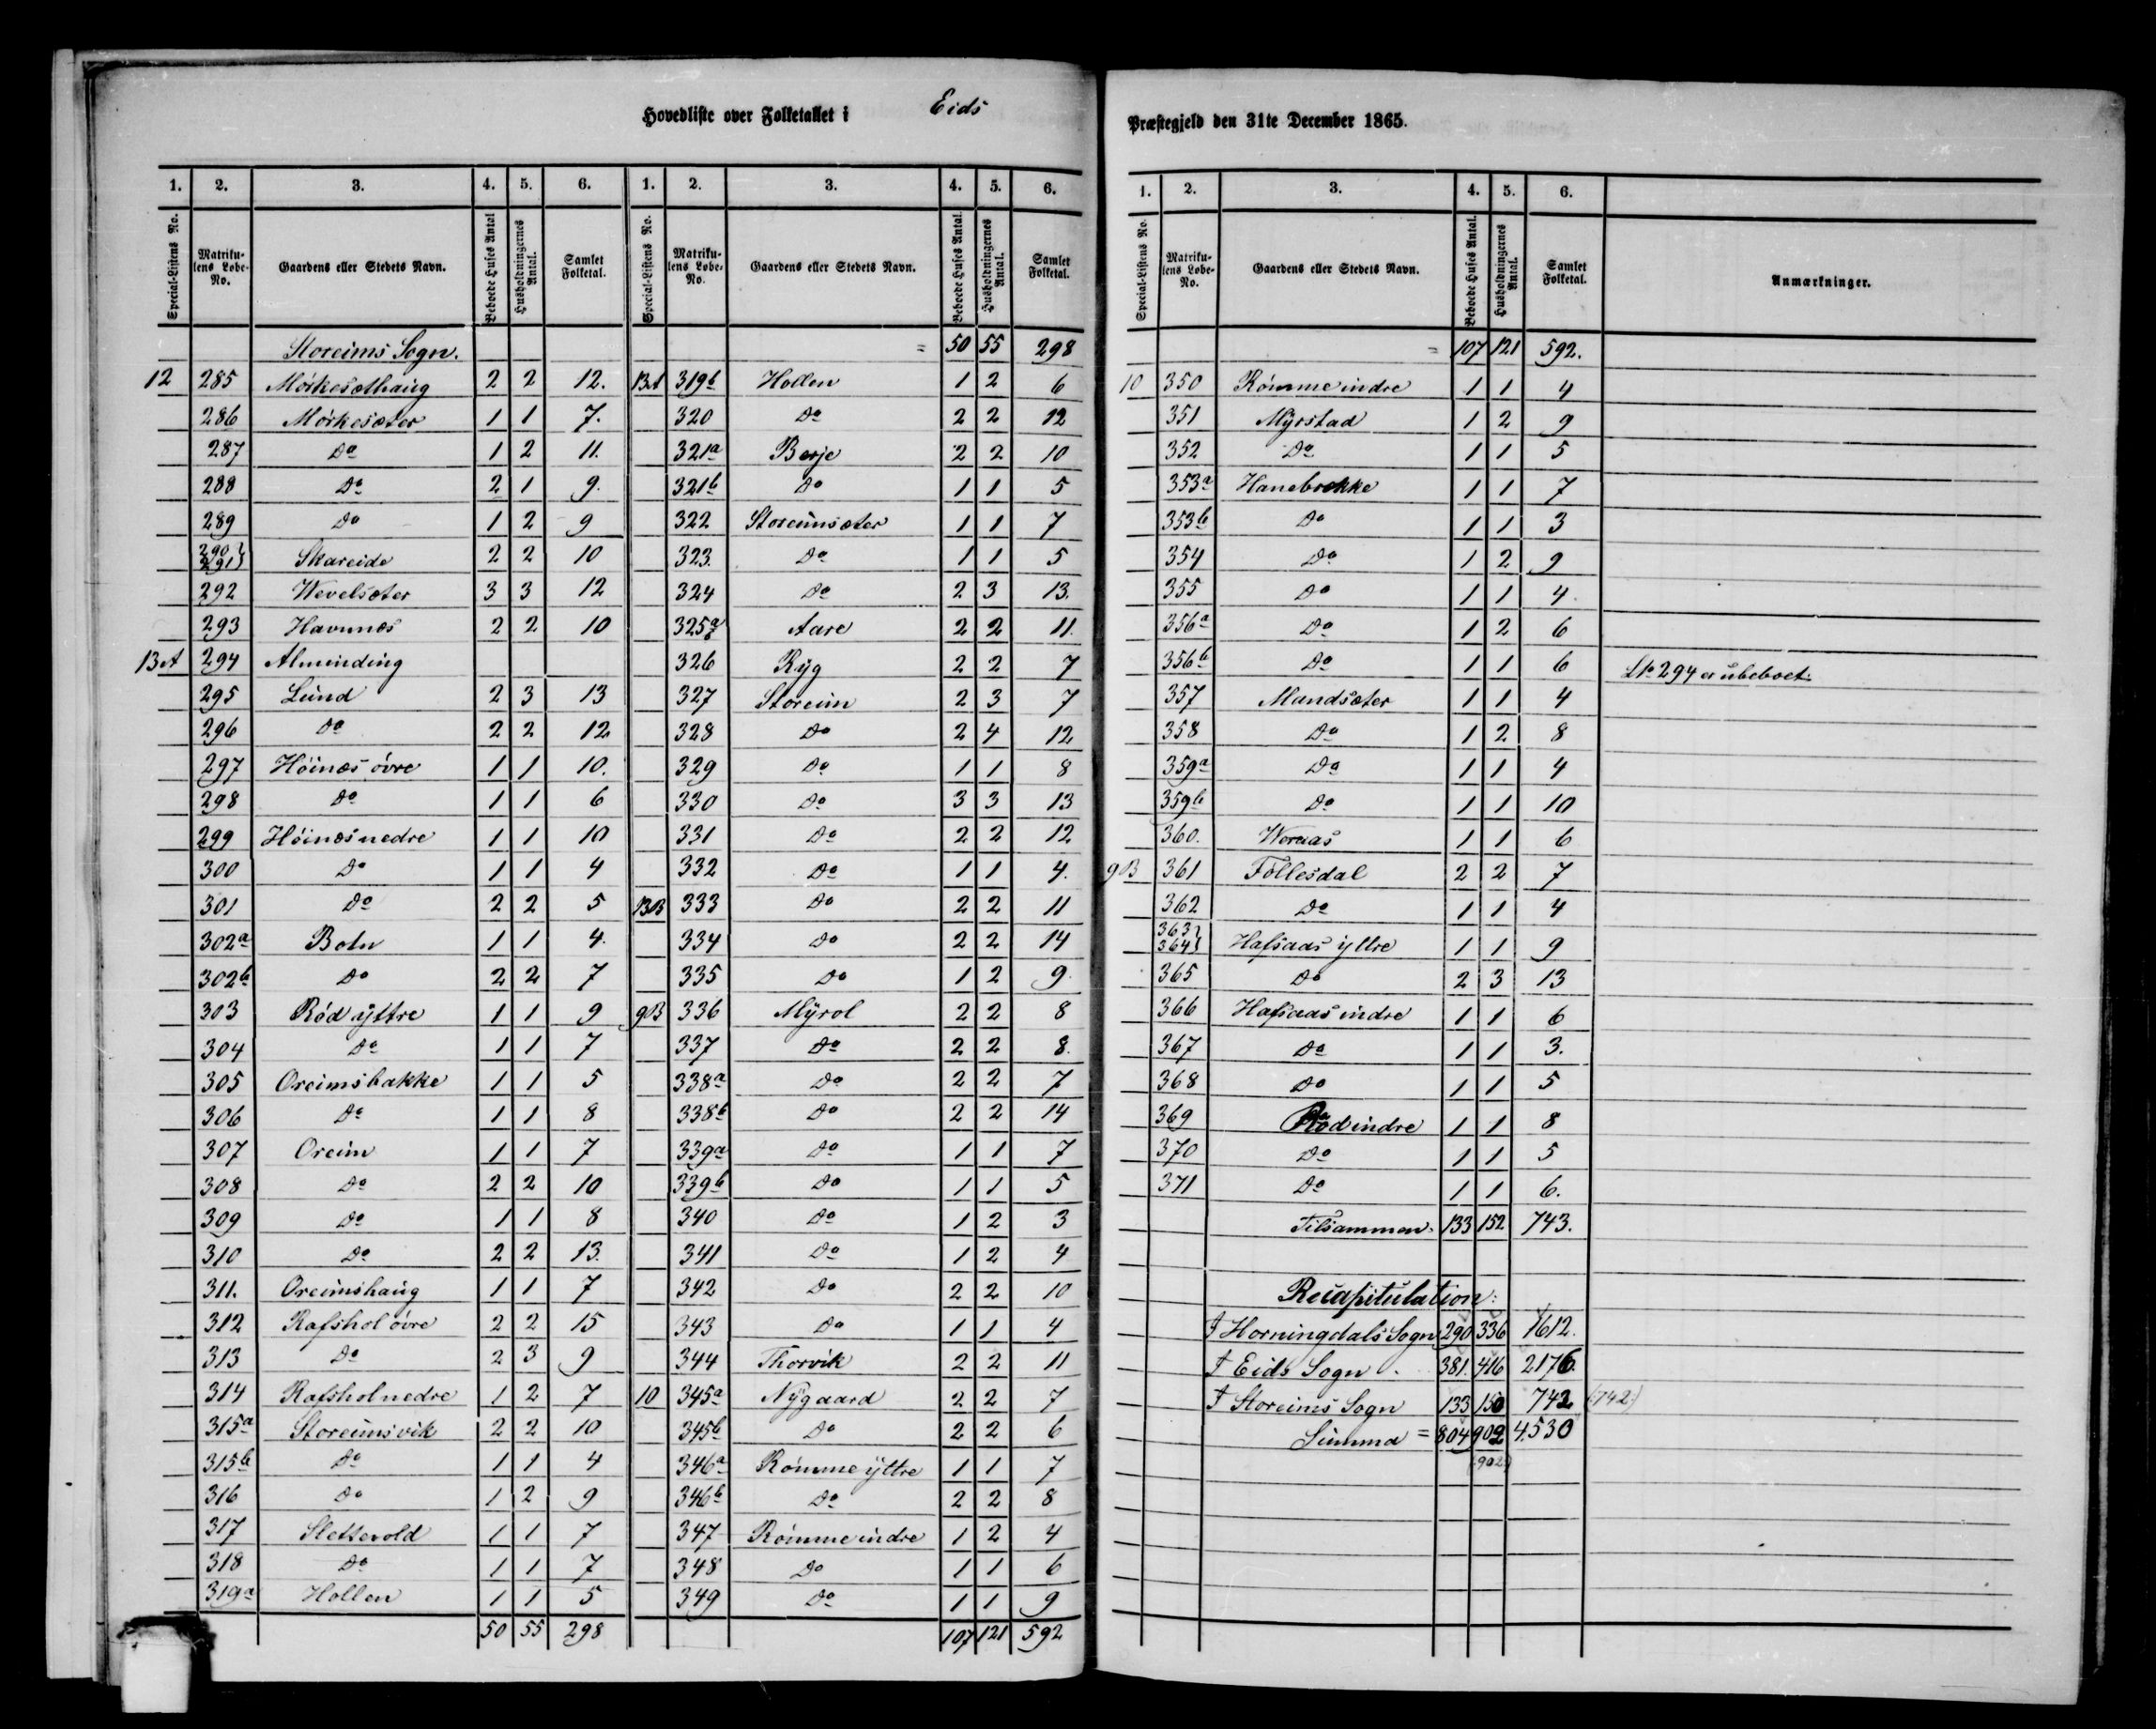 Hovedliste over Folketallet i Eids Præstegjeld den 31te December 1865.
1. 2. 3. 4. 5. 6.
Special-Listens No. Matrikulens Løbe-No. Gaardens eller Stedets Navn. Beboede Huses Antal Husholdningernes Antal. Samlet Folketal.
Storeims Sogn.
12 285 Mørkesæthaug 2 2 12.
286 Mørkesæter 1 1 7.
287 Do 1 2 11.
288 Do 2 1 9.
289 Do 1 2 9
290 291 Skareide 2 2 10
292 Wevelsæter 3 3 12
293 Havnnæs 2 2 10
13A 294 Alminding
295 Lund 2 3 13
296 Do 2 2 12
297 Høinæs øvre 1 1 10.
298 Do 1 1 6
299 Høinæs nedre 1 1 10
300 Do 1 1 4
301 Do 2 2 5
302a Botn 1 1 4.
302b Do 2 2 7
303 Rød yttre 1 1 9
304 Do 1 1 7
305 Oreimsbakke 1 1 5
306 Do 1 1 8
307 Oreim 1 1 7
308 Do 2 2 10
309 Do 1 1 8
310 Do 2 2 13.
311. Oreimshaug 1 1 7
312 Rafshol øvre 2 2 15
313 Do 2 3 9
314 Rafshol nedre 1 2 7
315a Storeimsvik 2 2 10
315b Do 1 1 4
316 Do 1 2 9
317 Slettevold 1 1 7
318 Do 1 1 7
319a Hollen 1 1 5
50 55 298
1. 2. 3. 4. 5. 6.
Special-Listens No. Matrikulens Løbe-No. Gaardens eller Stedets Navn. Beboede Huses Antal. Husholdningernes Antal. Samlet Folketal.
= 50 55 298
13A 319b Hollen 1 2 6
320 Do 2 2 12
321a Berje 2 2 10
321b Do 1 1 5
322 Storeimsæter 1 1 7
323. Do 1 1 5
324 Do 2 3 13.
325a Aare 2 2 11.
326 Ryg 2 2 7
327 Storeim 2 3 7
328 Do 2 4 12
329 Do 1 1 8
330 Do 3 3 13
331 Do 2 2 12
332 Do 1 1 4.
13B 333 Do 2 2 11
334 Do 2 2 14
335 Do 1 2 9.
9B 336 Myrol 2 2 8
337 Do 2 2 8.
338a Do 2 2 7
338b Do 2 2 14
339a Do 1 1 7
339b Do 1 1 5
340 Do 1 2 3
341 Do 1 2 4
342 Do 2 2 10
343 Do 1 1 4
344 Thorvik 2 2 11
10 345a Nygaard 2 2 7
345b Do 2 2 6
346a Rømme yttre 1 1 7
346b Do 2 2 8
347 Rømme indre 1 2 4
348 Do 1 1 6
349 Do 1 1 9
107 121 592
1. 2. 3. 4. 5. 6.
Special-Listens No. Matrikulens Løbe-No. Gaardens eller Stedets Navn. Beboede Huses Antal. Husholdningernes Antal. Samlet Folketal. Anmærkninger.
= 107 121 592.
10 350 Rømme indre 1 1 4
351 Myrstad 1 2 9
352 Do 1 1 5
353a Hanebrekke 1 1 7
353b Do 1 1 3
354 Do 1 2 9
355 Do 1 1 4.
356a Do 1 2 6
356b Do 1 1 6 LNo 294 er ubeboet.
357 Mandsæter 1 1 4
358 Do 1 2 8
359a Do 1 1 4
359b Do 1 1 10
360. 1 1 6
9B 361 Føllesdal 2 2 7
362 Do 1 1 4
363 364 Hafsaas yttre 1 1 9
365 Do 2 3 13
366 Hafsaas indre 1 1 6
367 Do 1 1 3.
368 Do 1 1 5
369 Rød indre 1 1 8
370 Do 1 1 5
371 Do 1 1 6.
Tilsammen. 133 152 743.
Recapitulation:
Horningdals Sogn 290 336 1612.
Eids Sogn. 381. 416 2176
Storeims Sogn 133 150 742 (742)
Summa = 804 902 4530
(902)